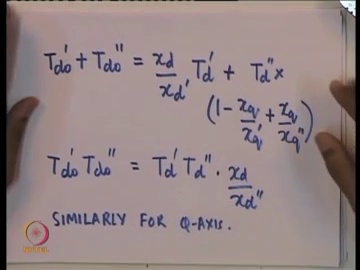 Tdo' + Tdo'' = xd/xd' Td' + Td'' ×
(1 - xq/xq' + xq/xq'')
Tdo' Tdo'' = Td' Td'' . xd/xd''
SIMILARLY FOR Q-AXIS.
NPTEL